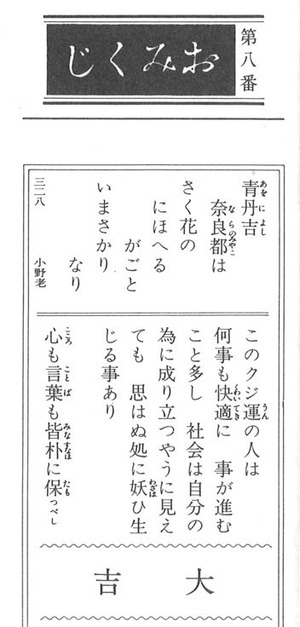 第八番
おみくじ
青丹吉
奈良都は
さく花の
にほへる
がごと
いまさかり
なり
小野老
三二八
このクジ運の人は
何事も快適に 事が進む
こと多し 社会は自分の
為に成り立つやうに見え
ても 思はぬ処に妖ひ生
じる事あり
心も言葉も皆朴に保つべし
大吉